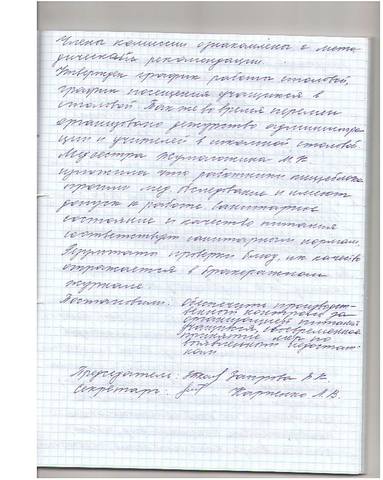 Члены комиссии ознакомлены с мето
дическими рекомендации.
Утвержден график работы столовой,
график посещения учащихся в
столовой. Так же во время перемен
организовано дежурство администра
ции и учителей в школьной столовой
Медсестра М.К.
что работники пищеблока
прошли мед. обследование и имеют
допуск к работе. Санитарное
состояние и качество питания
соответствует санитарным нормам.
Результаты проверки блюд, их качество
отражается в бракеражном
журнале.
Постановили: Обеспечить производст-
венный контроль за
организацией питания
учащихся своевременное
принятие мер по
выявленным недостат-
кам
Председатель:
Секретарь: Л.В.